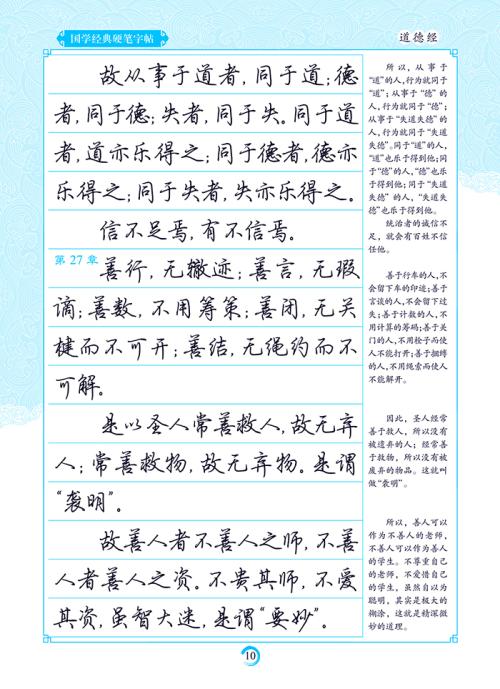 国学经典硬笔字帖
道德经
故从事于道者,同于道;德
者,同于德;失者,同于失。同于道
者,道亦乐得之;同于德者,德亦
乐得之;同于失者,失亦乐得之。
信不足焉,有不信焉。
第27章
善行,无辙迹;善言,无瑕
谪;善数,不用筹策;善闭,无关
楗而不可开;善结,无绳约而不
可解。
是以圣人常善救人,故无弃
人;常善救物,故无弃物。是谓
“袭明”。
故善人者不善人之师,不善
人者善人之资。不贵其师,不爱
其资,虽智大迷,是谓“要妙”。
所以,从事于
“道”的人,行为就同于
“道”;从事于“德”的
人,行为就同于“德”;
从事于“失道失德”的
人,行为就同于“失道
失德”。同于“道”的人,
“道”也乐于得到他;同
于“德”的人,“德”也乐
于得到他;同于“失道
失德”的人,“失道失
德”也乐于得到他。
统治者的诚信不
足,就会有百姓不信
任他。
善于行车的人,不
会留下车的印迹;善于
言谈的人,不会留下过
失;善于计数的人,不
用计算的筹码;善于关
门的人,不用栓子而使
人不能打开;善于捆缚
的人,不用绳索而使人
不能解开。
因此,圣人经常
善于救人,所以没有
被遗弃的人;经常善
于救物,所以没有被
废弃的物品。这就叫
做“袭明”。
所以,善人可以
作为不善人的老师,
不善人可以作为善人
的学生。不尊重自己
的老师,不爱惜自己
的学生,虽然自以为
聪明,其实是极大的
糊涂,这就是精深微
妙的道理。
10